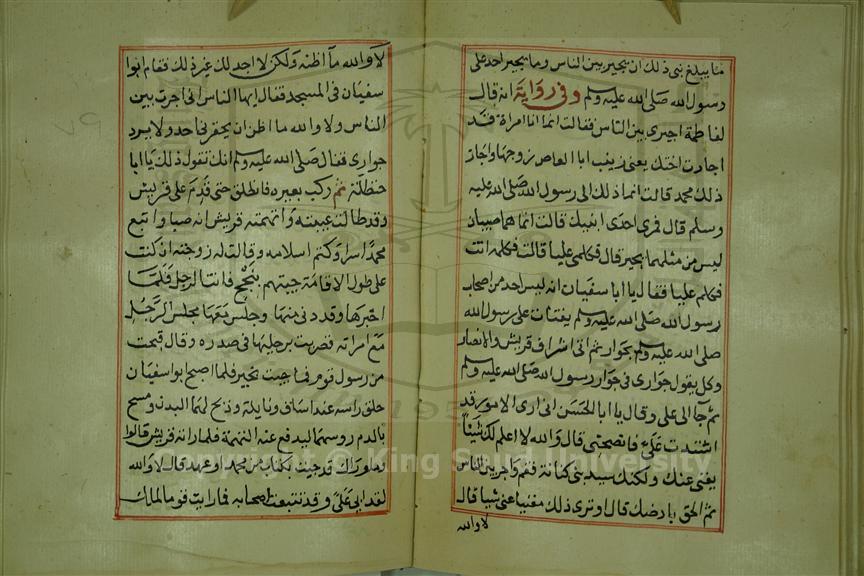 مما يبلغ بنى ذلك ان يجير بين الناس وما يجير احد على
رسول الله صلى الله عليه وسلم وفى رواية انه قال
لفاطمة اجيرى بين الناس فقالت انما انا امراة قد
اجارت اختك يعنى زينب ابا العاص زوجها واجاز
ذلك محمد قالت انما ذلك الى رسول الله صلى الله عليه
وسلم قال فمرى احدى ابنيك قالت انما هما صبيان
ليس من مثلهما يجير قال فكلمى عليا قالت فكلمه انت
فكلم عليا فقال يا ابا سفيان انه ليس احد من اصحاب
رسول الله صلى الله عليه وسلم يفتات على رسول الله
صلى الله عليه وسلم بجوار ثم اتى اشراف قريش والانصار
وكل يقول جوارى فى جوار رسول الله صلى الله عليه وسلم
ثم جا الى على وقال يا ابا الحسن انى ارى الامور قد
اشتدت على فانصحنى قال والله لا اعلم لك شيئا
يغنى عنك ولكنك سيد بنى كنانة فقم واجر بين الناس
ثم الحق بارضك قال او ترى ذلك مغنيا عنى شيا قال
لا والله
لا والله ما اظنه ولكن لا اجد لك غير ذلك فقام ابوا
سفيان فى المسجد فقال ايها الناس انى اجرت بين
الناس ولا والله ما اظن ان يحقر نى احد ولا يرد
جوارى فقال صلى الله عليه وسلم انك تقول ذلك يا ابا
حنظلة ثم ركب بعيره فانطلق حتى قدم على قريش
وقد طالت غيبته واتهمته قريش انه صبا واتبع
محمدا سرا وكتم اسلامه وقالت له زوجته ان كنت
على طول الاقامة جيتهم بنجح فانت الرجل فلما
اخبرها وقد دنى منها وجلس معها مجلس الرجل
مع امراته فضربت برجليها فى صدره وقال قبحت
من رسول قوم فما جيت بخير فلما اصبح ابو سفيان
حلق راسه عند اساف ونايلة وذبح لهما البدن ومسح
بالدم روسهما ليدفع عنه التهمة فلما راته قريش قالوا
ما وراك قد جيت بكتاب من محمد او عهد قال لا والله
لقد ابى على وقد تتبعت اصحابه فما رايت قوما لملك
Copyright © King Saud University